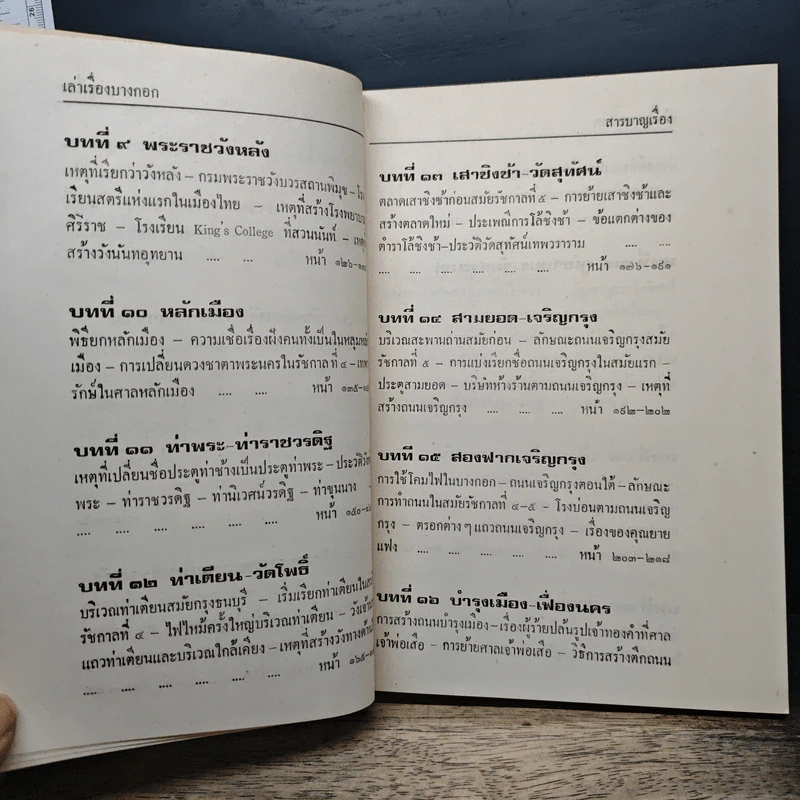 เล่าเรื่องบางกอก
บทที่ ๙ พระราชวังหลัง
เหตุที่เรียกว่าวังหลัง – กรมพระราชวังบวรสถานพิมุข – โรง
เรียนสตรีแห่งแรกในเมืองไทย – เหตุที่สร้างโรงพยาบาล
ศิริราช – โรงเรียน King's College ที่สวนนันท์ –
สร้างวังนันทอุทยาน .... .... หน้า ๑๒๖–
บทที่ ๑๐ หลักเมือง
พิธียกหลักเมือง – ความเชื่อเรื่องฝังคนทั้งเป็นในหลุม
เมือง – การเปลี่ยนดวงชาตาพระนครในรัชกาลที่ ๔ –
รักษ์ในศาลหลักเมือง .... .... หน้า ๑๓๕–
บทที่ ๑๑ ท่าพระ–ท่าราชวรดิฐ
เหตุที่เปลี่ยนชื่อประตูท่าช้างเป็นประตูท่าพระ – ประวัติ
พระ – ท่าราชวรดิฐ – ท่านิเวศน์วรดิฐ – ท่าขุนนาง
.... .... .... .... .... หน้า ๑๕๐–
บทที่ ๑๒ ท่าเตียน–วัดโพธิ์
บริเวณท่าเตียนสมัยกรุงธนบุรี – เริ่มเรียกท่าเตียนใน
รัชกาลที่ ๔ – ไฟไหม้ครั้งใหญ่บริเวณท่าเตียน –
แถวท่าเตียนและบริเวณใกล้เคียง – เหตุที่สร้างวังทางด้าน
.... .... .... .... .... หน้า ๑๖๕–
สารบาญเรื่อง
บทที่ ๑๓ เสาชิงช้า–วัดสุทัศน์
ตลาดเสาชิงช้าก่อนสมัยรัชกาลที่ ๕ – การย้ายเสาชิงช้าและ
สร้างตลาดใหม่ – ประเพณีการโล้ชิงช้า – ข้อแตกต่างของ
ตำราโล้ชิงช้า–ประวัติวัดสุทัศน์เทพวราราม .... ....
.... .... .... .... .... .... หน้า ๑๗๖–๑๙๑
บทที่ ๑๔ สามยอด–เจริญกรุง
บริเวณสะพานถ่านสมัยก่อน – ลักษณะถนนเจริญกรุงสมัย
รัชกาลที่ ๕ – การแบ่งเรียกชื่อถนนเจริญกรุงในสมัยแรก –
ประตูสามยอด – บริษัทห้างร้านตามถนนเจริญกรุง – เหตุที่
สร้างถนนเจริญกรุง .... .... .... หน้า ๑๙๒–๒๐๒
บทที่ ๑๕ สองฟากเจริญกรุง
การใช้โคมไฟในบางกอก – ถนนเจริญกรุงตอนใต้ – ลักษณะ
การทำถนนในสมัยรัชกาลที่ ๔–๕ – โรงบ่อนตามถนนเจริญ
กรุง – ตรอกต่าง ๆ แถวถนนเจริญกรุง – เรื่องของคุณยาย
แฟง .... .... .... .... .... หน้า ๒๐๓–๒๑๘
บทที่ ๑๖ บำรุงเมือง–เฟื่องนคร
การสร้างถนนบำรุงเมือง–เรื่องผู้ร้ายปล้นรูปเจ้าทองคำที่ศาล
เจ้าพ่อเสือ – การย้ายศาลเจ้าพ่อเสือ – วิธีการสร้างตึกถนน